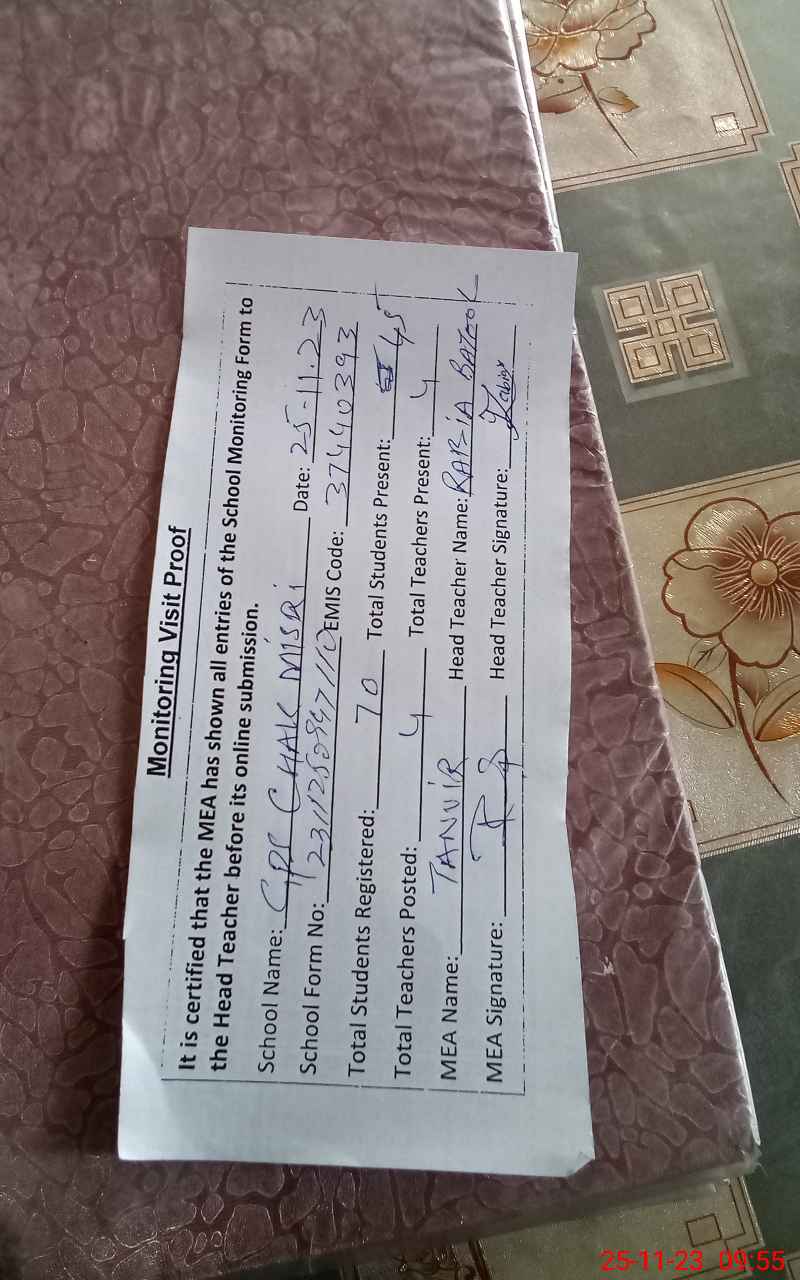 Monitoring Visit Proof
It is certified that the MEA has shown all entries of the School Monitoring Form to
the Head Teacher before its online submission.
School Name: GPS CHAK MISRI Date: 25-11-23
School Form No: EMIS Code: 37440393
Total Students Registered: 70 Total Students Present: 45
Total Teachers Posted: 4 Total Teachers Present: 4
MEA Name: TANVIR Head Teacher Name: RABIA
MEA Signature: Head Teacher Signature:
25-11-23 09:55